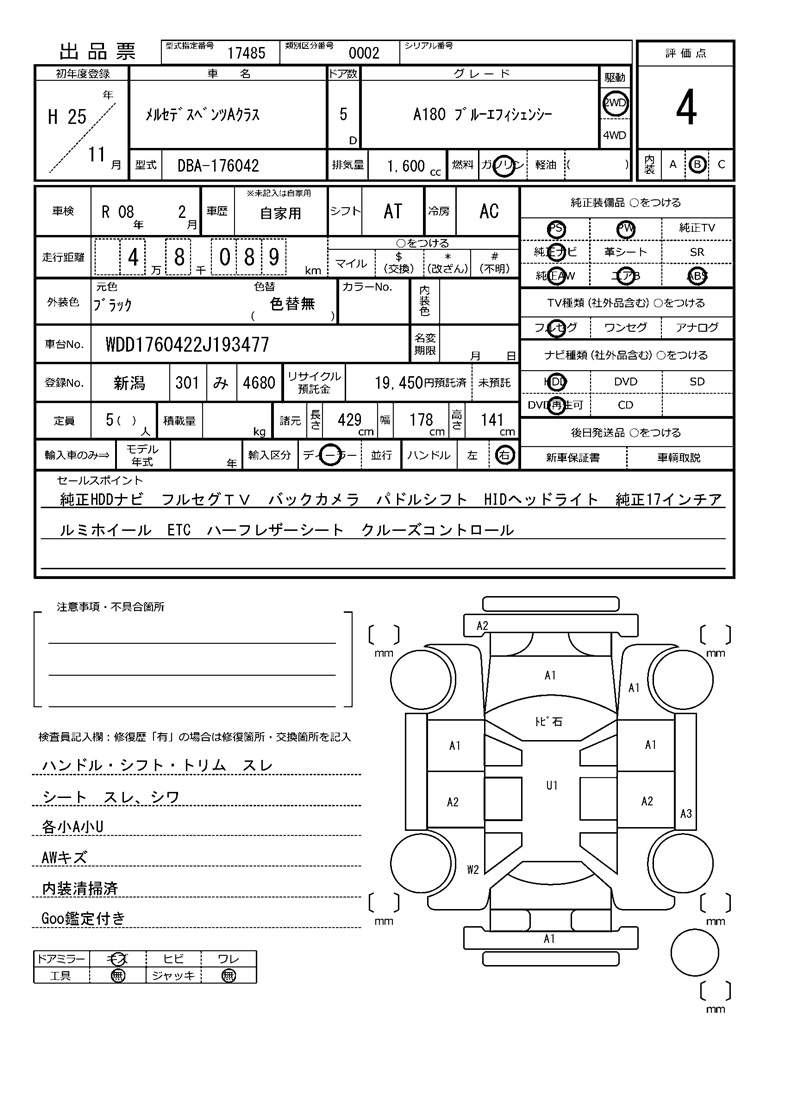 出品票 型式指定番号 17485 類別区分番号 0002 シリアル番号
評価点
初年度登録 車 名 ドア数 グレード 駆動
H 25 年
11 月
ﾒﾙｾﾃﾞｽﾍﾞﾝﾂAｸﾗｽ 5 D A180 ﾌﾞﾙｰｴﾌｨｼｪﾝｼｰ
2WD
4WD
4
型式 DBA-176042 排気量 1,600 cc 燃料 ガソリン 軽油 ( )
内装 A B C
車検 R 08 年 2 月 車歴 ※未記入は自家用 自家用 シフト AT 冷房 AC
走行距離 4 万 8 千 0 8 9 km
○をつける
マイル $ (交換) * (改ざん) # (不明)
外装色 元色 ﾌﾞﾗｯｸ 色替 色替無 ( ) カラーNo. 内装色
車台No. WDD1760422J193477 名変期限 月 日
登録No. 新潟 301 み 4680 リサイクル預託金 19,450円預託済 未預託
定員 5 ( ) 人 積載量 kg 諸元 長さ 429 cm 幅 178 cm 高さ 141 cm
輸入車のみ⇒ モデル年式 年 輸入区分 ディーラー 並行 ハンドル 左 右
純正装備品 ○をつける
PS PW 純正TV
純正ナビ 革シート SR
純正AW エアB ABS
TV種類(社外品含む) ○をつける
フルセグ ワンセグ アナログ
ナビ種類(社外品含む) ○をつける
HDD DVD SD
DVD再生可 CD
後日発送品 ○をつける
新車保証書 車輌取説
セールスポイント
純正HDDナビ フルセグTV バックカメラ パドルシフト HIDヘッドライト 純正17インチア
ルミホイール ETC ハーフレザーシート クルーズコントロール
注意事項・不具合箇所
検査員記入欄：修復歴「有」の場合は修復箇所・交換箇所を記入
ハンドル・シフト・トリム スレ
シート スレ、シワ
各小A小U
AWキズ
内装清掃済
Goo鑑定付き
ドアミラー キズ ヒビ ワレ
工具 無 ジャッキ 無
A2
mm mm
A1
A1
ﾄﾋﾞ石
A1 A1
U1
A2 A2
A3
W2
mm mm
A1
mm